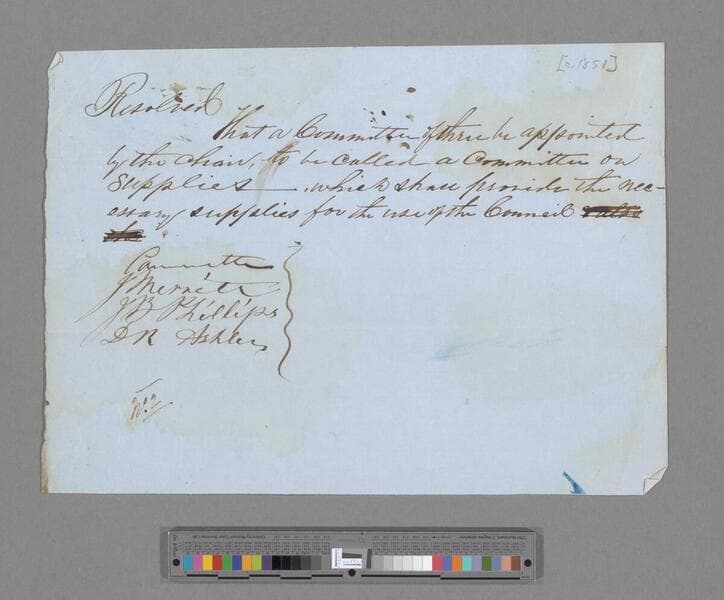 [c. 1851]
Resolved
That a Committee of three be appointed
by the chair, to be called a Committee on
Supplies —, which shall provide the nec-
essary supplies for the use of the Council
Committee
J Merrill
J B Phillips
D R Ashley
No. 2